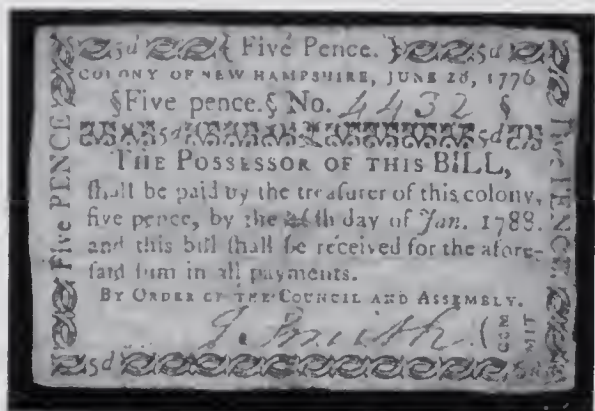 5d { Five Pence. } 5d
COLONY OF NEW HAMPSHIRE, JUNE 28, 1776
§Five pence.§ No. 4432 §
5d 5d
THE POSSESSOR OF THIS BILL,
ſhall be paid by the treaſurer of this colony,
five pence, by the day of Jan. 1788.
and this bill ſhall be received for the afore-
ſaid ſum in all payments.
BY ORDER OF THE COUNCIL AND ASSEMBLY.
J. Smith } COM
MIT
5d
Five PENCE
Five PENCE